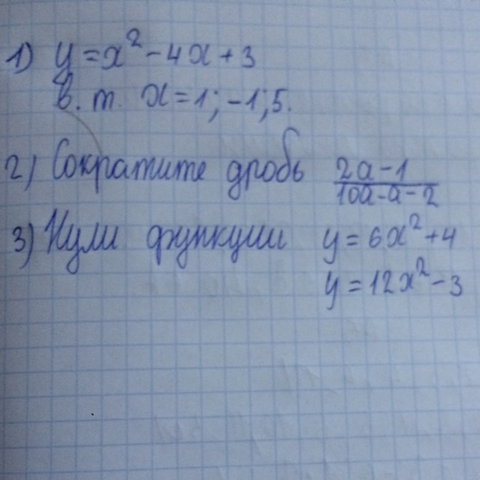 1) y = x² - 4x + 3
в. т. x = 1; -1; 5.
2) Сократите дробь (2a - 1)/(10a - a - 2)
3) Нули функции y = 6x² + 4
y = 12x² - 3